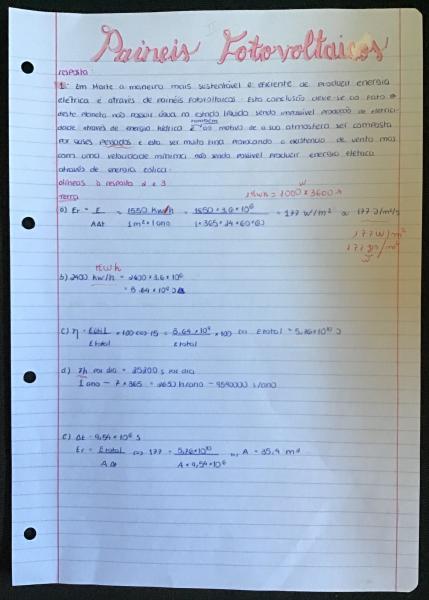 Paineis Fotovoltaicos
resposta:
1. Em Marte a maneira mais sustentável e eficiente de produzir energia
elétrica é através de painéis fotovoltaicos. Esta conclusão deve-se ao facto
deste planeta não possuir água no estado líquido sendo impossível produção de eletrici-
dade através de energia hídrica. E também ao motivo de a sua atmosfera ser composta
por gases pesados e esta ser muito fina provocando a existência de vento mas
com uma velocidade mínima não sendo possível produzir energia elétrica
através de energia eólica.
alíneas à resposta 2 e 3
Terra
1kwh = 1000 W × 3600 s
a) Er = E / AΔt = 1550 kW/h / 1m² × 1 ano = 1550 × 3,6 × 10⁶ / 1 × 365 × 24 × 60 × 60 = 177 W/m² ou 177 J/m²/s
177 W/m²
177 J/s/m²
W
kWh
b) 2400 kw/h = 2400 × 3,6 × 10⁶
= 8,64 × 10⁹ J
c) η = Eútil / Etotal × 100 <=> 15 = 8,64 × 10⁹ / Etotal × 100 <=> Etotal = 5,76 × 10¹⁰ J
d) 7h por dia = 25200 s por dia
1 ano - 7 × 365 = h/ano - s/ano
e) Δt = 9,54 × 10⁶ s
Er = Etotal / A Δt <=> 177 = 5,76 × 10¹⁰ / A × 9,54 × 10⁶ <=> A = m²